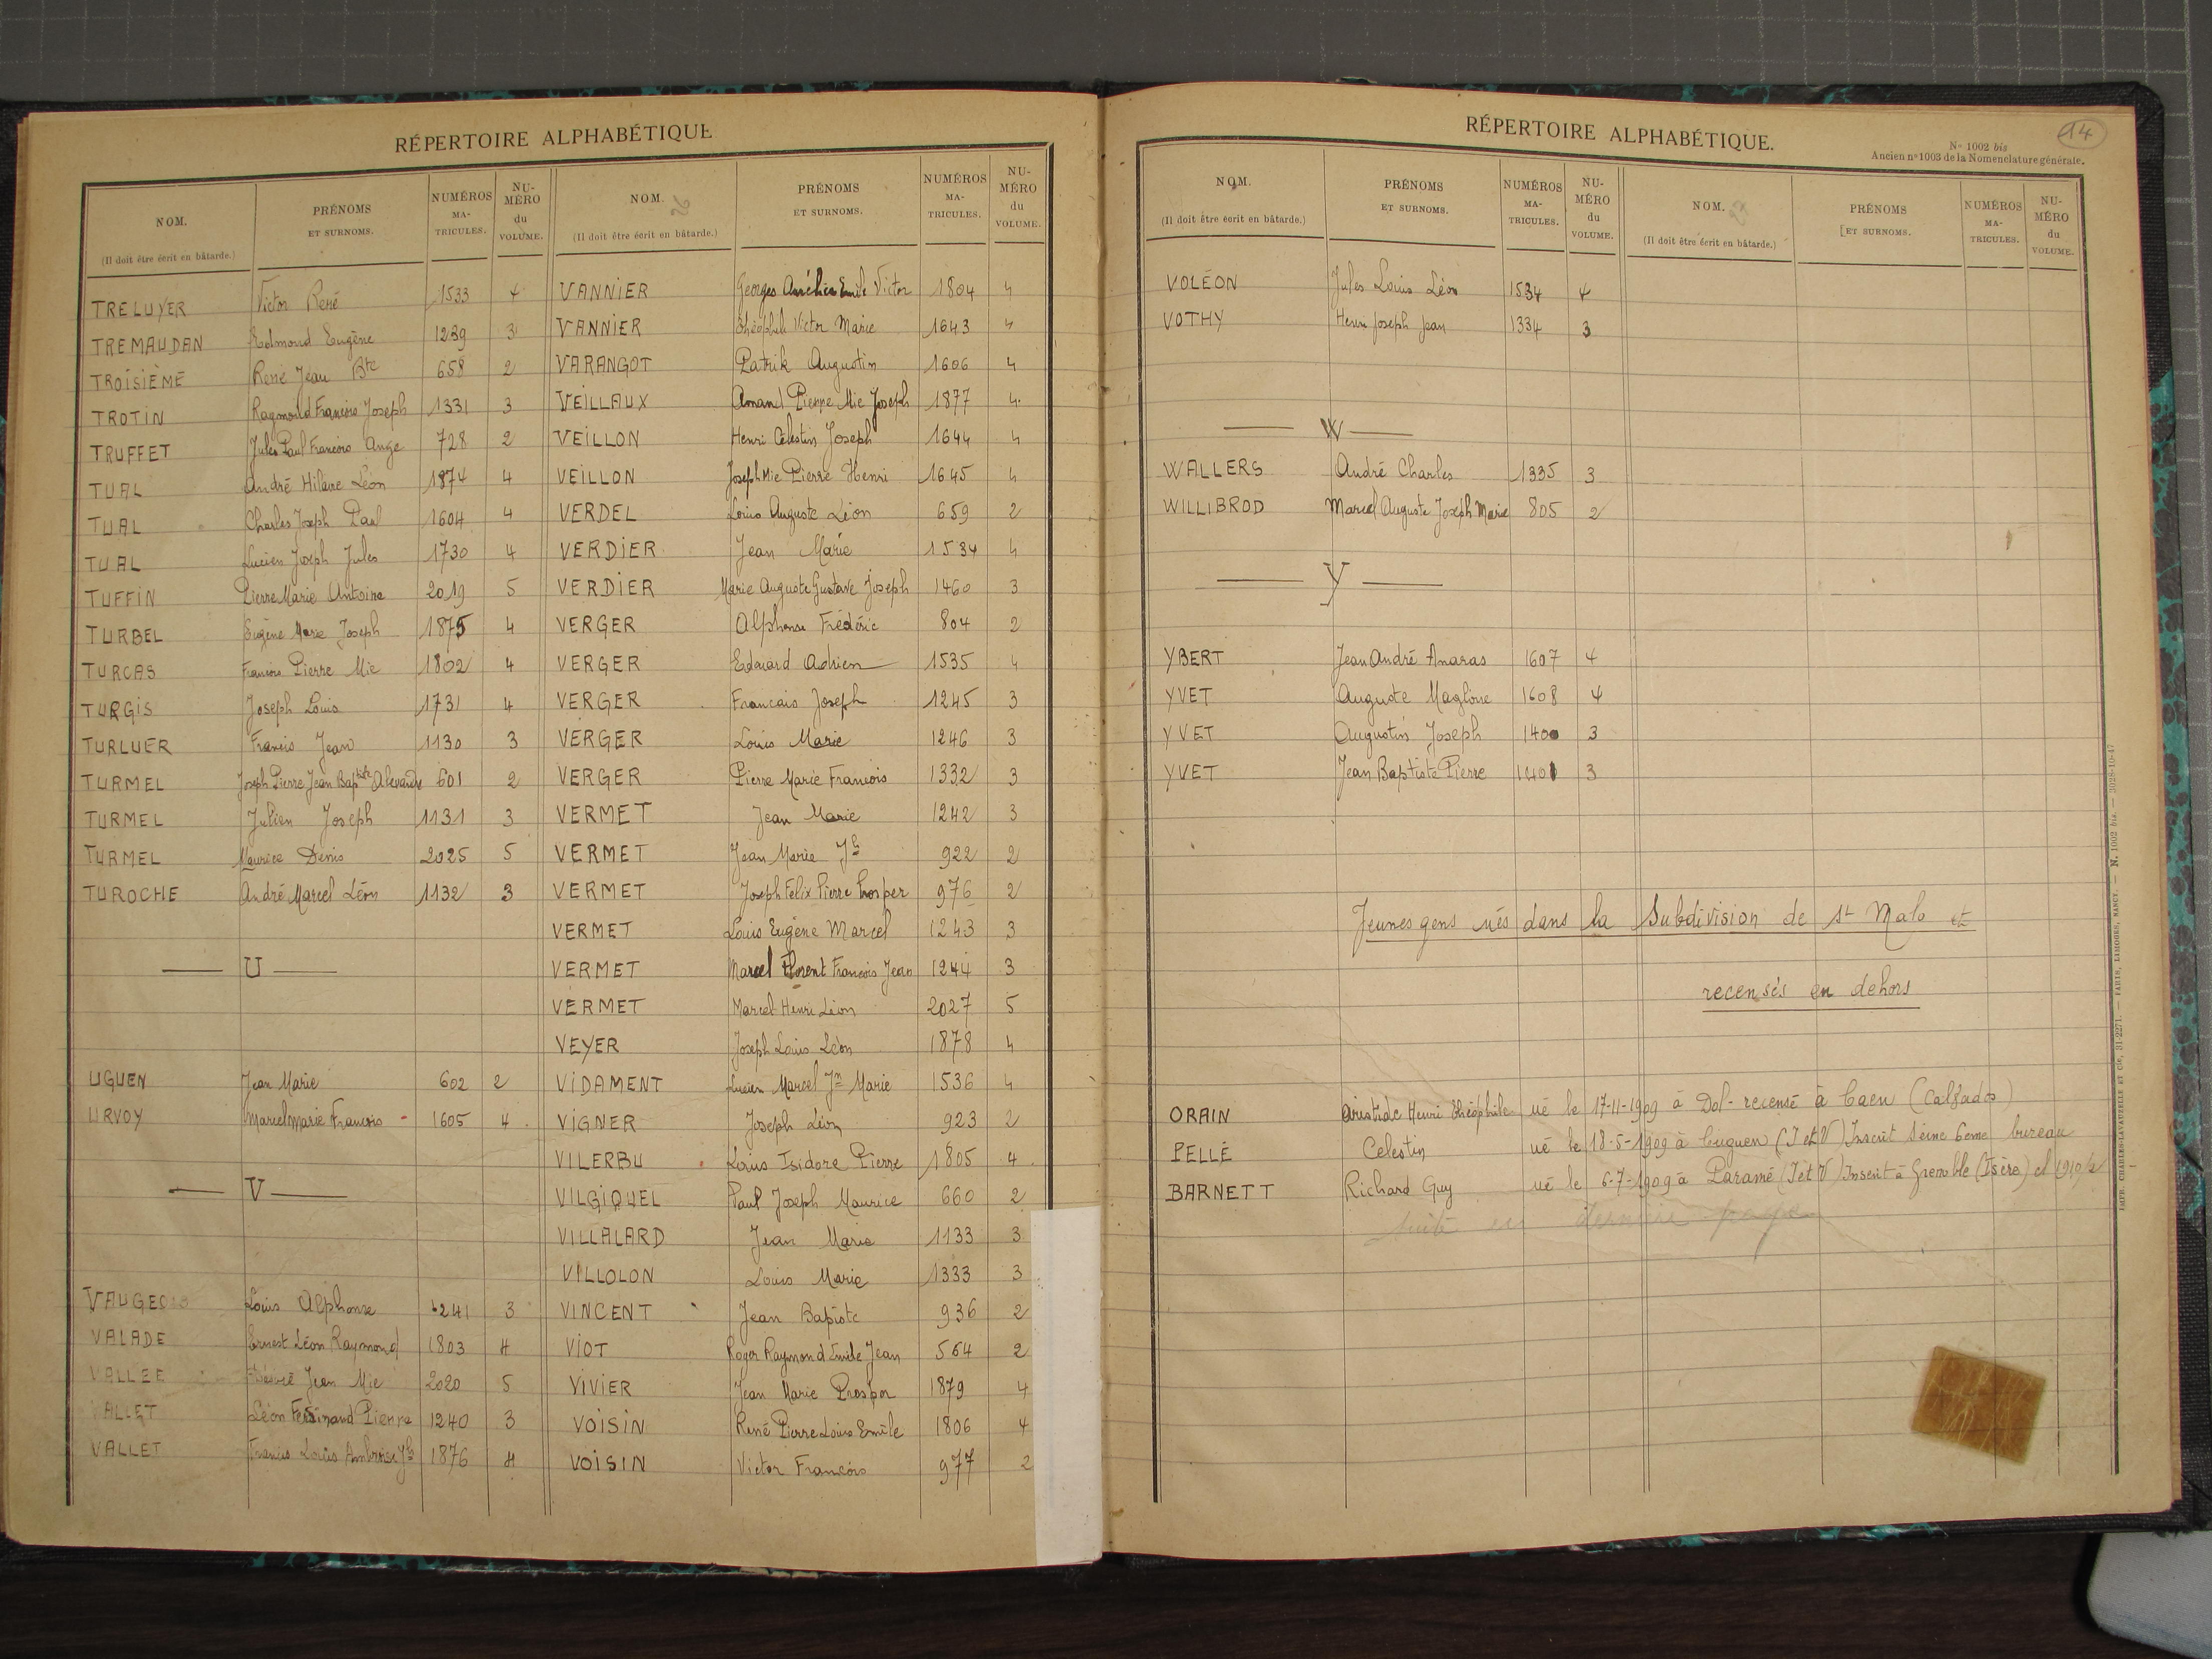 RÉPERTOIRE ALPHABÉTIQUE
NOM.
(Il doit être écrit en bâtarde.)
PRÉNOMS
ET SURNOMS.
NUMÉROS
MA-
TRICULES.
NU-
MÉRO
du
VOLUME.
TRELUYER Victor René 1533 4
TREMAUDAN Edmond Eugène 1239 3
TROISIÈME René Jean Bte 658 2
TROTIN Raymond François Joseph 1331 3
TRUFFET Jules Paul François Ange 728 2
TUAL André Hilaire Léon 1874 4
TUAL Charles Joseph Paul 1604 4
TUAL Lucien Joseph Jules 1730 4
TUFFIN Pierre Marie Antoine 2019 5
TURBEL Eugène Marie Joseph 1875 4
TURCAS François Pierre Mie 1802 4
TURGIS Joseph Louis 1731 4
TURLUER Francis Jean 1130 3
TURMEL Joseph Pierre Jean Baptiste Alexandre 601 2
TURMEL Julien Joseph 1131 3
TURMEL Maurice Denis 2025 5
TUROCHE André Marcel Léon 1132 3
— U —
UGUEN Jean Marie 602 2
URVOY Marcel Marie François 1605 4
— V —
VAUGEOIS Louis Alphonse 1241 3
VALADE Ernest Léon Raymond 1803 4
VALLEE Désiré Jean Mie 2020 5
VALLET Léon Ferdinand Pierre 1240 3
VALLET Francis Louis Ambroise Jh 1876 4
NOM.
(Il doit être écrit en bâtarde.)
PRÉNOMS
ET SURNOMS.
NUMÉROS
MA-
TRICULES.
NU-
MÉRO
du
VOLUME.
VANNIER Georges Emile Victor 1804 4
VANNIER Théophile Victor Marie 1643 4
VARANGOT Patrik Augustin 1606 4
VEILLAUX Amand Pierre Mie Joseph 1877 4
VEILLON Henri Célestin Joseph 1644 4
VEILLON Joseph Mie Pierre Henri 1645 4
VERDEL Louis Auguste Léon 659 2
VERDIER Jean Marie 1534 4
VERDIER Marie Auguste Gustave Joseph 1460 3
VERGER Alphonse Frédéric 804 2
VERGER Edouard Adrien 1535 4
VERGER Francais Joseph 1245 3
VERGER Louis Marie 1246 3
VERGER Pierre Marie François 1332 3
VERMET Jean Marie 1242 3
VERMET Jean Marie Jh 922 2
VERMET Joseph Félix Pierre Prosper 976 2
VERMET Louis Eugène Marcel 1243 3
VERMET Marcel Florent François Jean 1244 3
VERMET Marcel Henri Léon 2027 5
VEYER Joseph Louis Léon 1878 4
VIDAMENT Lucien Marcel Jn Marie 1536 4
VIGNER Joseph Léon 923 2
VILERBU Louis Isidore Pierre 1805 4
VILGIQUEL Paul Joseph Maurice 660 2
VILLALARD Jean Marie 1133 3
VILLOLON Louis Marie 1333 3
VINCENT Jean Bapiste 936 2
VIOT Roger Raymond Emile Jean 564 2
VIVIER Jean Marie Prosper 1879 4
VOISIN René Pierre Louis Emile 1806 4
VOISIN Victor François 977 2
RÉPERTOIRE ALPHABÉTIQUE.
14
No 1002 bis
Ancien no 1003 de la Nomenclature générale.
NOM.
(Il doit être écrit en bâtarde.)
PRÉNOMS
ET SURNOMS.
NUMÉROS
MA-
TRICULES.
NU-
MÉRO
du
VOLUME.
NOM.
(Il doit être écrit en bâtarde.)
PRÉNOMS
ET SURNOMS.
NUMÉROS
MA-
TRICULES.
NU-
MÉRO
du
VOLUME.
VOLÉON Jules Louis Léon 1534 4
VOTHY Henri Joseph Jean 1334 3
— W —
WALLERS André Charles 1335 3
WILLIBROD Marcel Auguste Joseph Marie 805 2
— Y —
YBERT Jean André Anaras 1607 4
YVET Auguste Magloire 1608 4
YVET Augustin Joseph 1400 3
YVET Jean Baptiste Pierre 1401 3
Jeunes gens nés dans la Subdivision de St Malo et
recensés en dehors
ORAIN Aristide Henri Théophile né le 17-11-1909 à Dol - recensé à Caen (Calfados)
PELLÉ Celestin né le 18-5-1909 à Cuguen (I et V) Inscrit Seine 6eme bureau
BARNETT Richard Guy né le 6-7-1909 à Paramé (I et V) Inscrit à Grenoble (Isère) cl 1910/2
suite en dernière page
IMPR. CHARLES-LAVAUZELLE ET Cie, 31-2271. — PARIS, LIMOGES, NANCY. — N. 1002 bis. — 3028-10-47